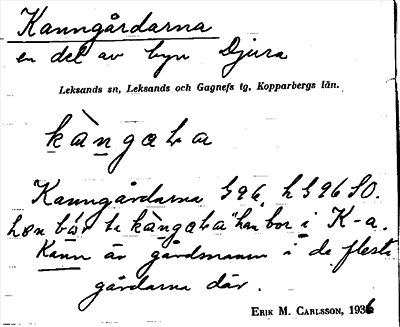 Kanngårdarna
en del av byn Djura
Leksands sn, Leksands och Gagnefs tg, Kopparbergs län.
kàngaba
Kanngårdarna 596, h 596 SO.
bor i K-a.
Kann är gårdsnamn i de flesta
gårdarna där.
ERIK M. CARLSSON, 1936